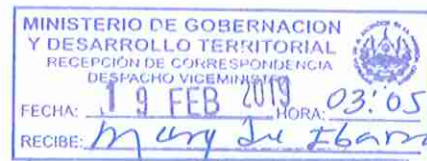 MINISTERIO DE GOBERNACION
Y DESARROLLO TERRITORIAL
RECEPCIÓN DE CORRESPONDENCIA
DESPACHO VICEMINISTRO
FECHA: 19 FEB 2019 HORA: 03:05
RECIBE: Ibarra